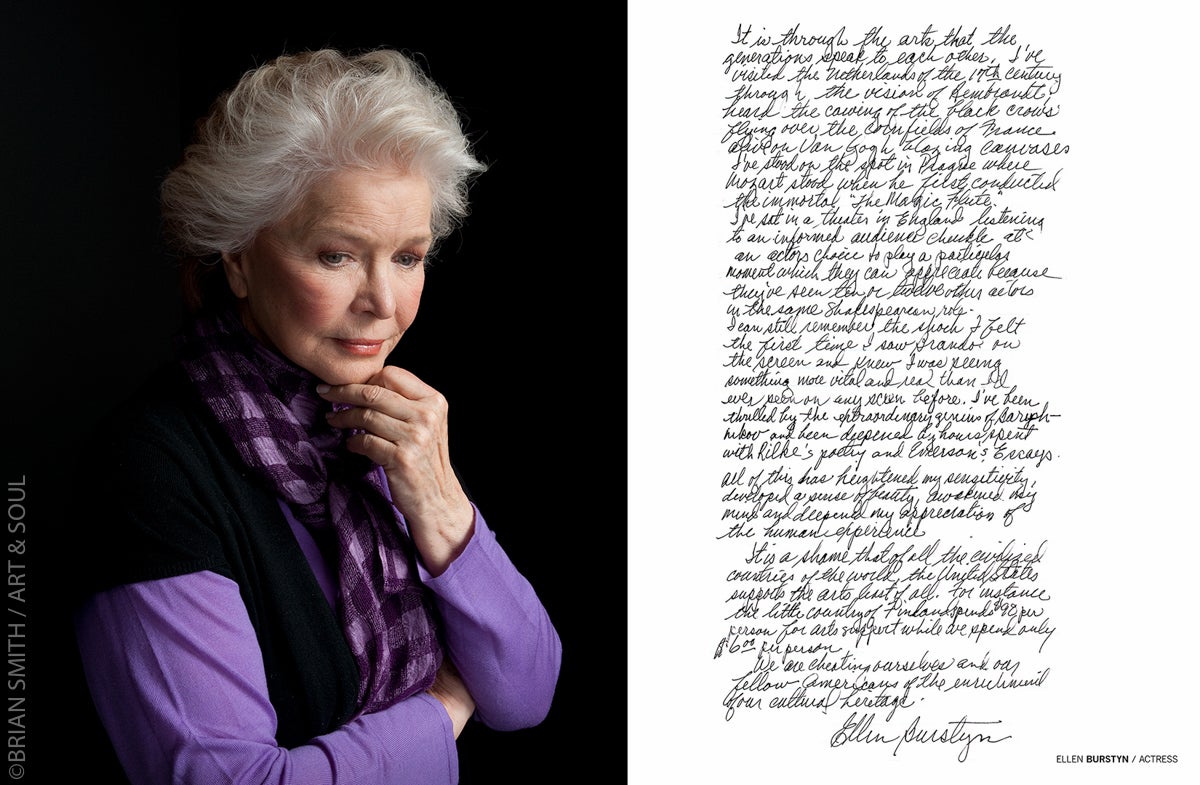 ©BRIAN SMITH / ART & SOUL
It is through the arts that the
generations speak to each other. I've
visited the Netherlands of the 17th century
through the vision of Rembrandt,
heard the cawing of the black crows
flying over the cornfields of France
alive on Van Gogh blazing canvases
I've stood on the spot in Prague where
Mozart stood when he first conducted
the immortal "The Magic Flute."
I've sat in a theater in England listening
to an informed audience chuckle at
an actors choice to play a particular
moment which they can appreciate because
they've seen ten or twelve other actors
in the same Shakespearean role.
I can still remember the shock I felt
the first time I saw Brando on
the screen and knew I was seeing
something more vital and real than I'd
ever seen on any screen before. I've been
thrilled by the extraordinary genius of Barysh-
nikov and been deepened by hours spent
with Rilke's poetry and Emerson's Essays.
All of this has heightened my sensitivity,
developed a sense of beauty, awakened my
mind and deepened my appreciation of
the human experience
It is a shame that of all the civilized
countries of the world, the United States
supports the arts least of all. For instance
the little country of Finland spends $98 per
person for arts support while we spend only
$6.00 per person
We are cheating ourselves and our
fellow Americans of the enrichment
of our cultural heritage.
Ellen Burstyn
ELLEN BURSTYN / ACTRESS